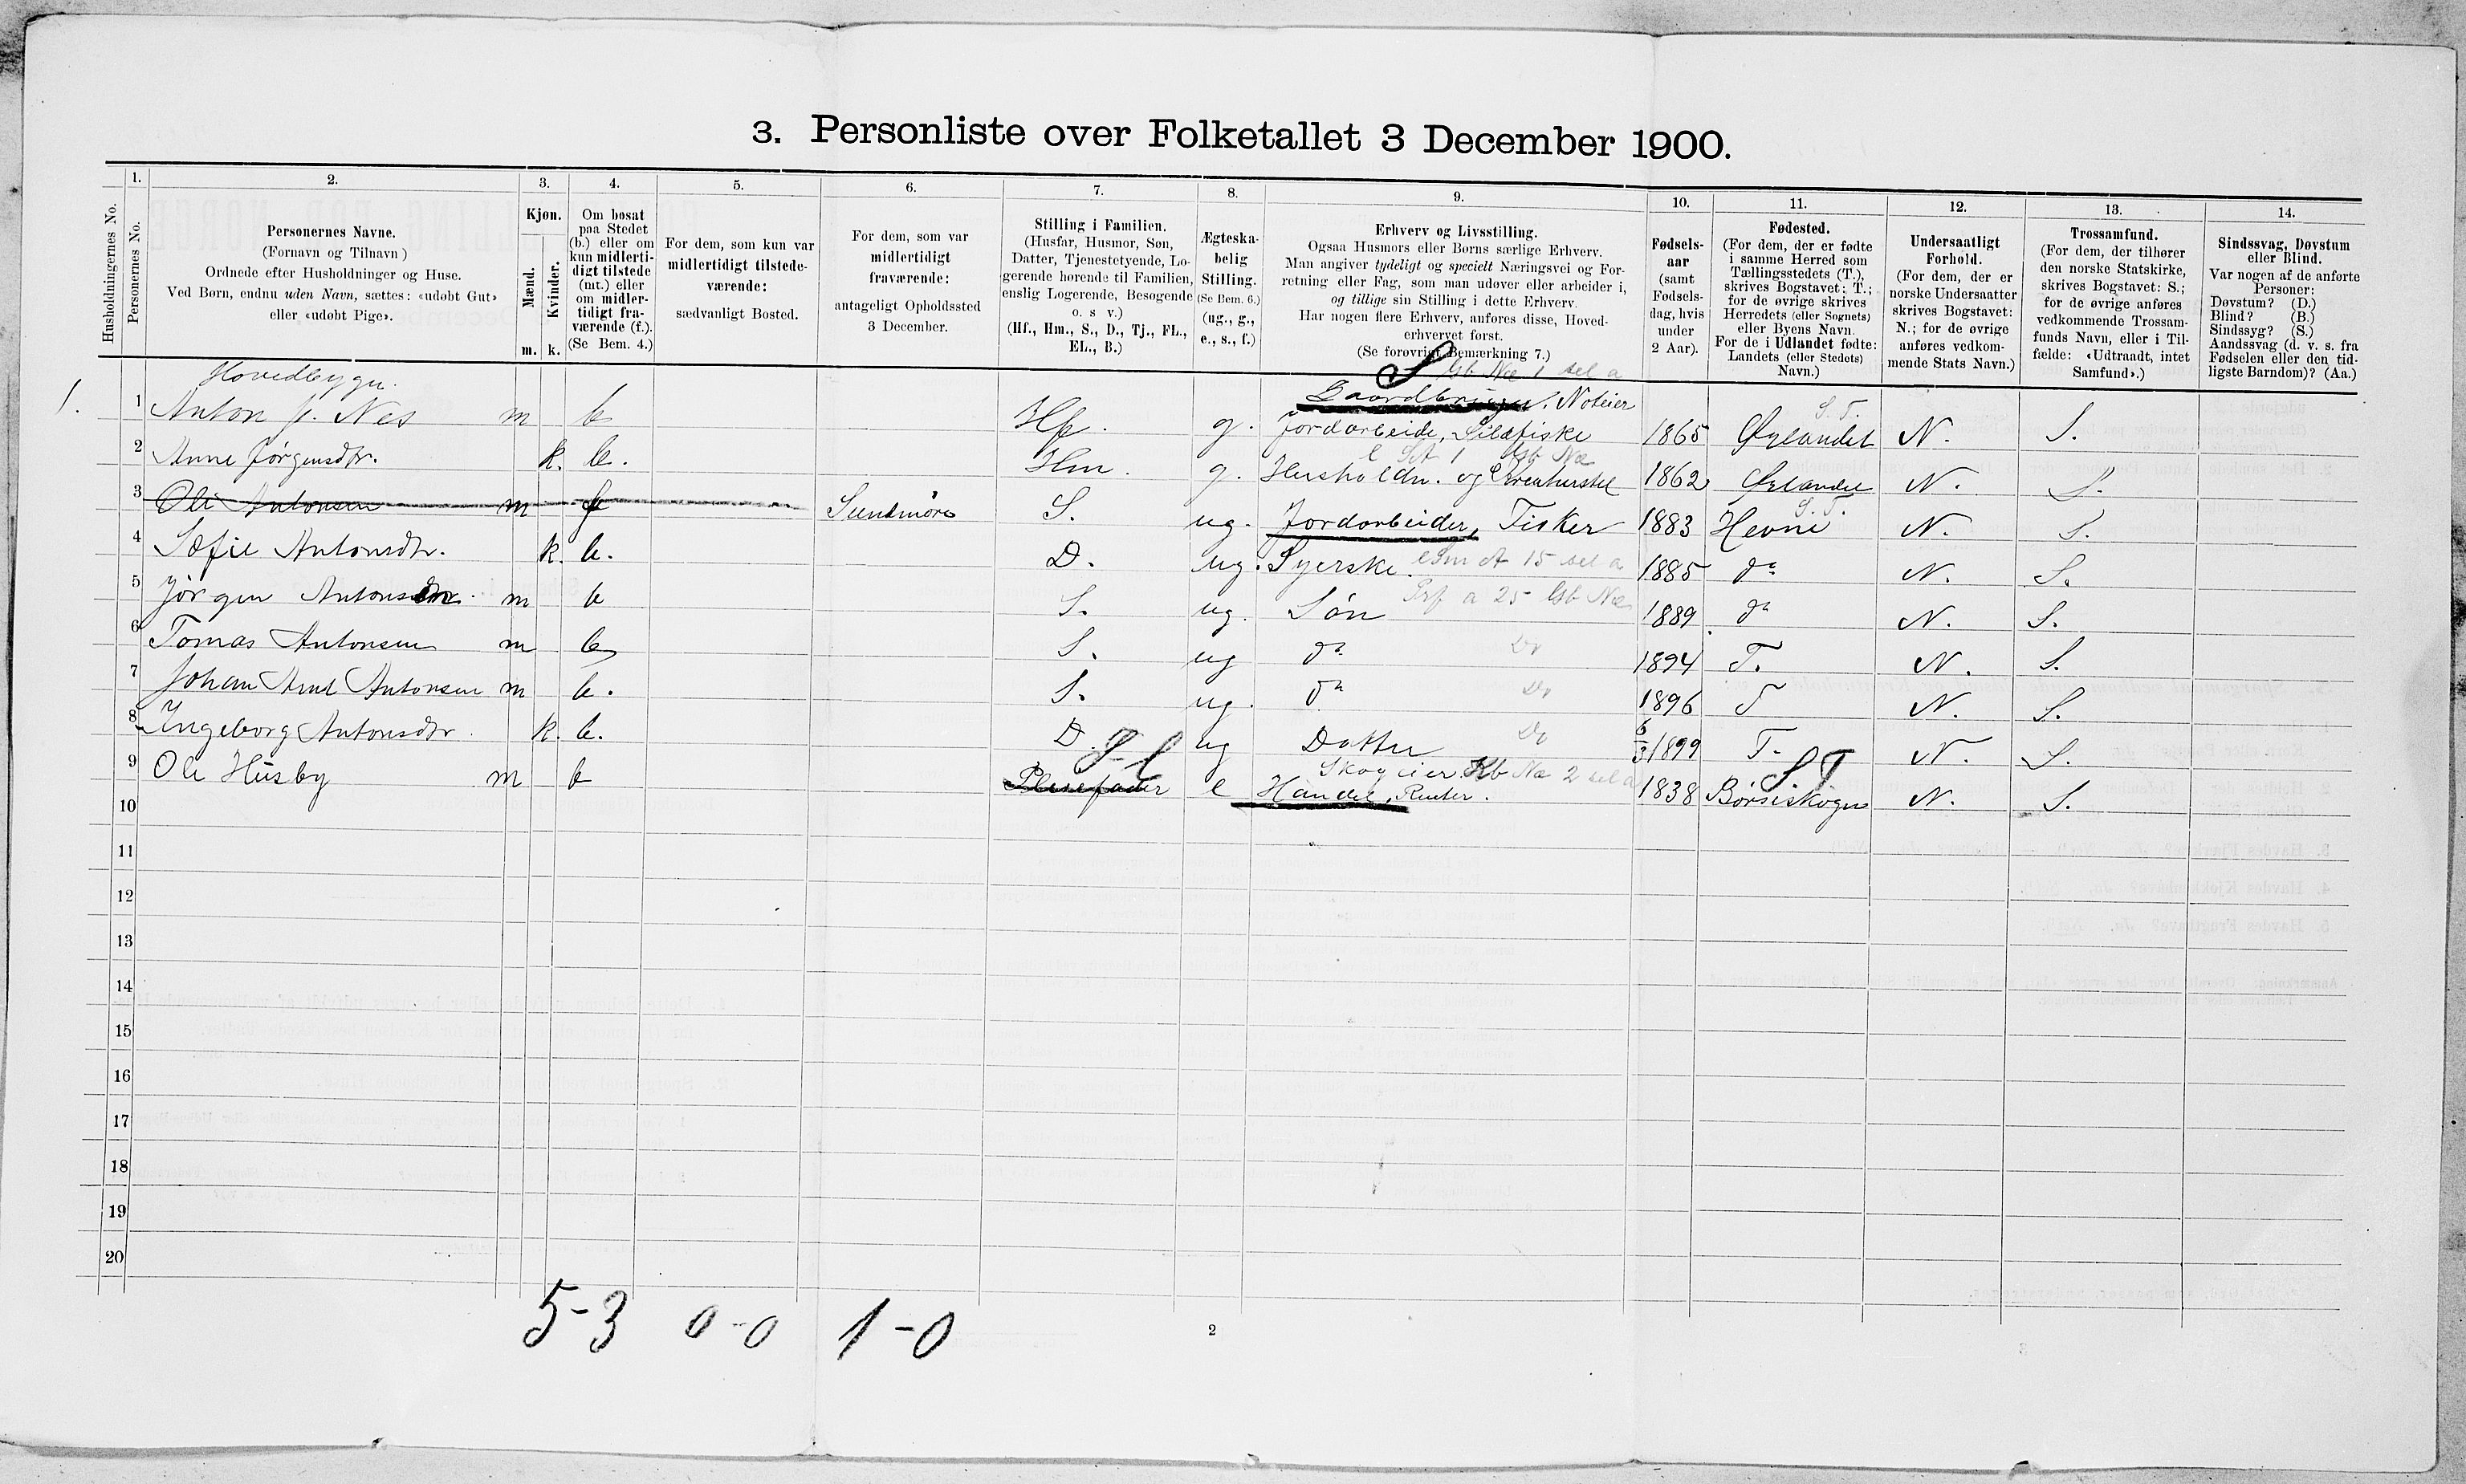 3. Personliste over Folketallet 3 December 1900.
Husholdningernes No.
1.
Personernes No.
2.
Personernes Navne.
(Fornavn og Tilnavn)
Ordnede efter Husholdninger og Huse.
Ved Børn, endnu uden Navn, sættes: «udøbt Gut»
eller «udøbt Pige».
3.
Kjøn.
Mænd.
Kvinder.
m. k.
4.
Om bosat
paa Stedet
(b.) eller om
kun midlerti-
digt tilstede
(mt.) eller
om midler-
tidigt fra-
værende (f.).
(Se Bem. 4.)
5.
For dem, som kun var
midlertidigt tilstede-
værende:
sædvanligt Bosted.
6.
For dem, som var
midlertidigt
fraværende:
antageligt Opholdssted
3 December.
7.
Stilling i Familien.
(Husfar, Husmor, Søn,
Datter, Tjenestetyende, Lo-
gerende hørende til Familien,
enslig Logerende, Besøgende
o. s v.)
(Hf., Hm., S., D., Tj., FL.,
EL., B.)
8.
Ægteska-
belig
Stilling.
(Se Bem. 6.)
(ug., g.,
e., s., f.)
9.
Erhverv og Livsstilling.
Ogsaa Husmors eller Børns særlige Erhverv.
Man angiver tydeligt og specielt Næringsvei og For-
retning eller Fag, som man udøver eller arbeider i,
og tillige sin Stilling i dette Erhverv.
Har nogen flere Erhverv, anføres disse, Hoved-
erhvervet først.
(Se forøvrigt Bemærkning 7.)
10.
Fødsels-
aar
(samt
Fødsels-
dag, hvis
under
2 Aar).
11.
Fødested.
(For dem, der er fødte
i samme Herred som
Tællingsstedets (T.),
skrives Bogstavet: T.;
for de øvrige skrives
Herredets (eller Sognets)
eller Byens Navn.
For de i Udlandet fødte:
Landets (eller Stedets)
Navn.)
12.
Undersaatligt
Forhold.
(For dem, der er
norske Undersaatter
skrives Bogstavet:
N.; for de øvrige
anføres vedkom-
mende Stats Navn.)
13.
Trossamfund.
(For dem, der tilhører
den norske Statskirke,
skrives Bogstavet: S.;
for de øvrige anføres
vedkommende Trossam-
funds Navn, eller i Til-
fælde: «Udtraadt, intet
Samfund».)
14.
Sindssvag, Døvstum
eller Blind.
Var nogen af de anførte
Personer:
Døvstum? (D.)
Blind? (B.)
Sindssyg? (S.)
Aandssvag (d. v. s. fra
Fødselen eller den tid-
ligste Barndom)? (Aa.)
Hovedbygn. S Gb Næ 1 sel a
Gaardbruger. Noteier S. T.
1. 1 Anton J. Nes m b Hf. g. Jordarbeide, Sildfiske 1865 Ørlandet N. S.
2 Anne Jørgensdtr. k. b. Hm. g. Husholdn. og Kreaturstel 1862 Ørlandet N. S.
3 Ole Antonsen m f Sundmøre S. ug. Jordarbeider, Fisker 1883 Hevne S. T. N. S.
4 Sofie Antonsdtr. k. b. D. ug. Syerske. 1885 do N. S.
5 Jørgen Antonsen m b S. ug. Søn 1889 do N. S.
6 Tomas Antonsen m b S. ug do Do 1894 T. N. S.
7 Johan Arnt Antonsen m b. S. ug. do Do 1896 T N. S.
8 Ingeborg Antonsdtr. k. b. D. ug Datter Do 6/3 1899 T. N. S.
Skogeier. S T
9 Ole Husby m b Pleiefader e Handel, Renter. 1838 Børseskogn N. S.
10
11
12
13
14
15
16
17
18
19
20
5-3 0-0 1-0
2